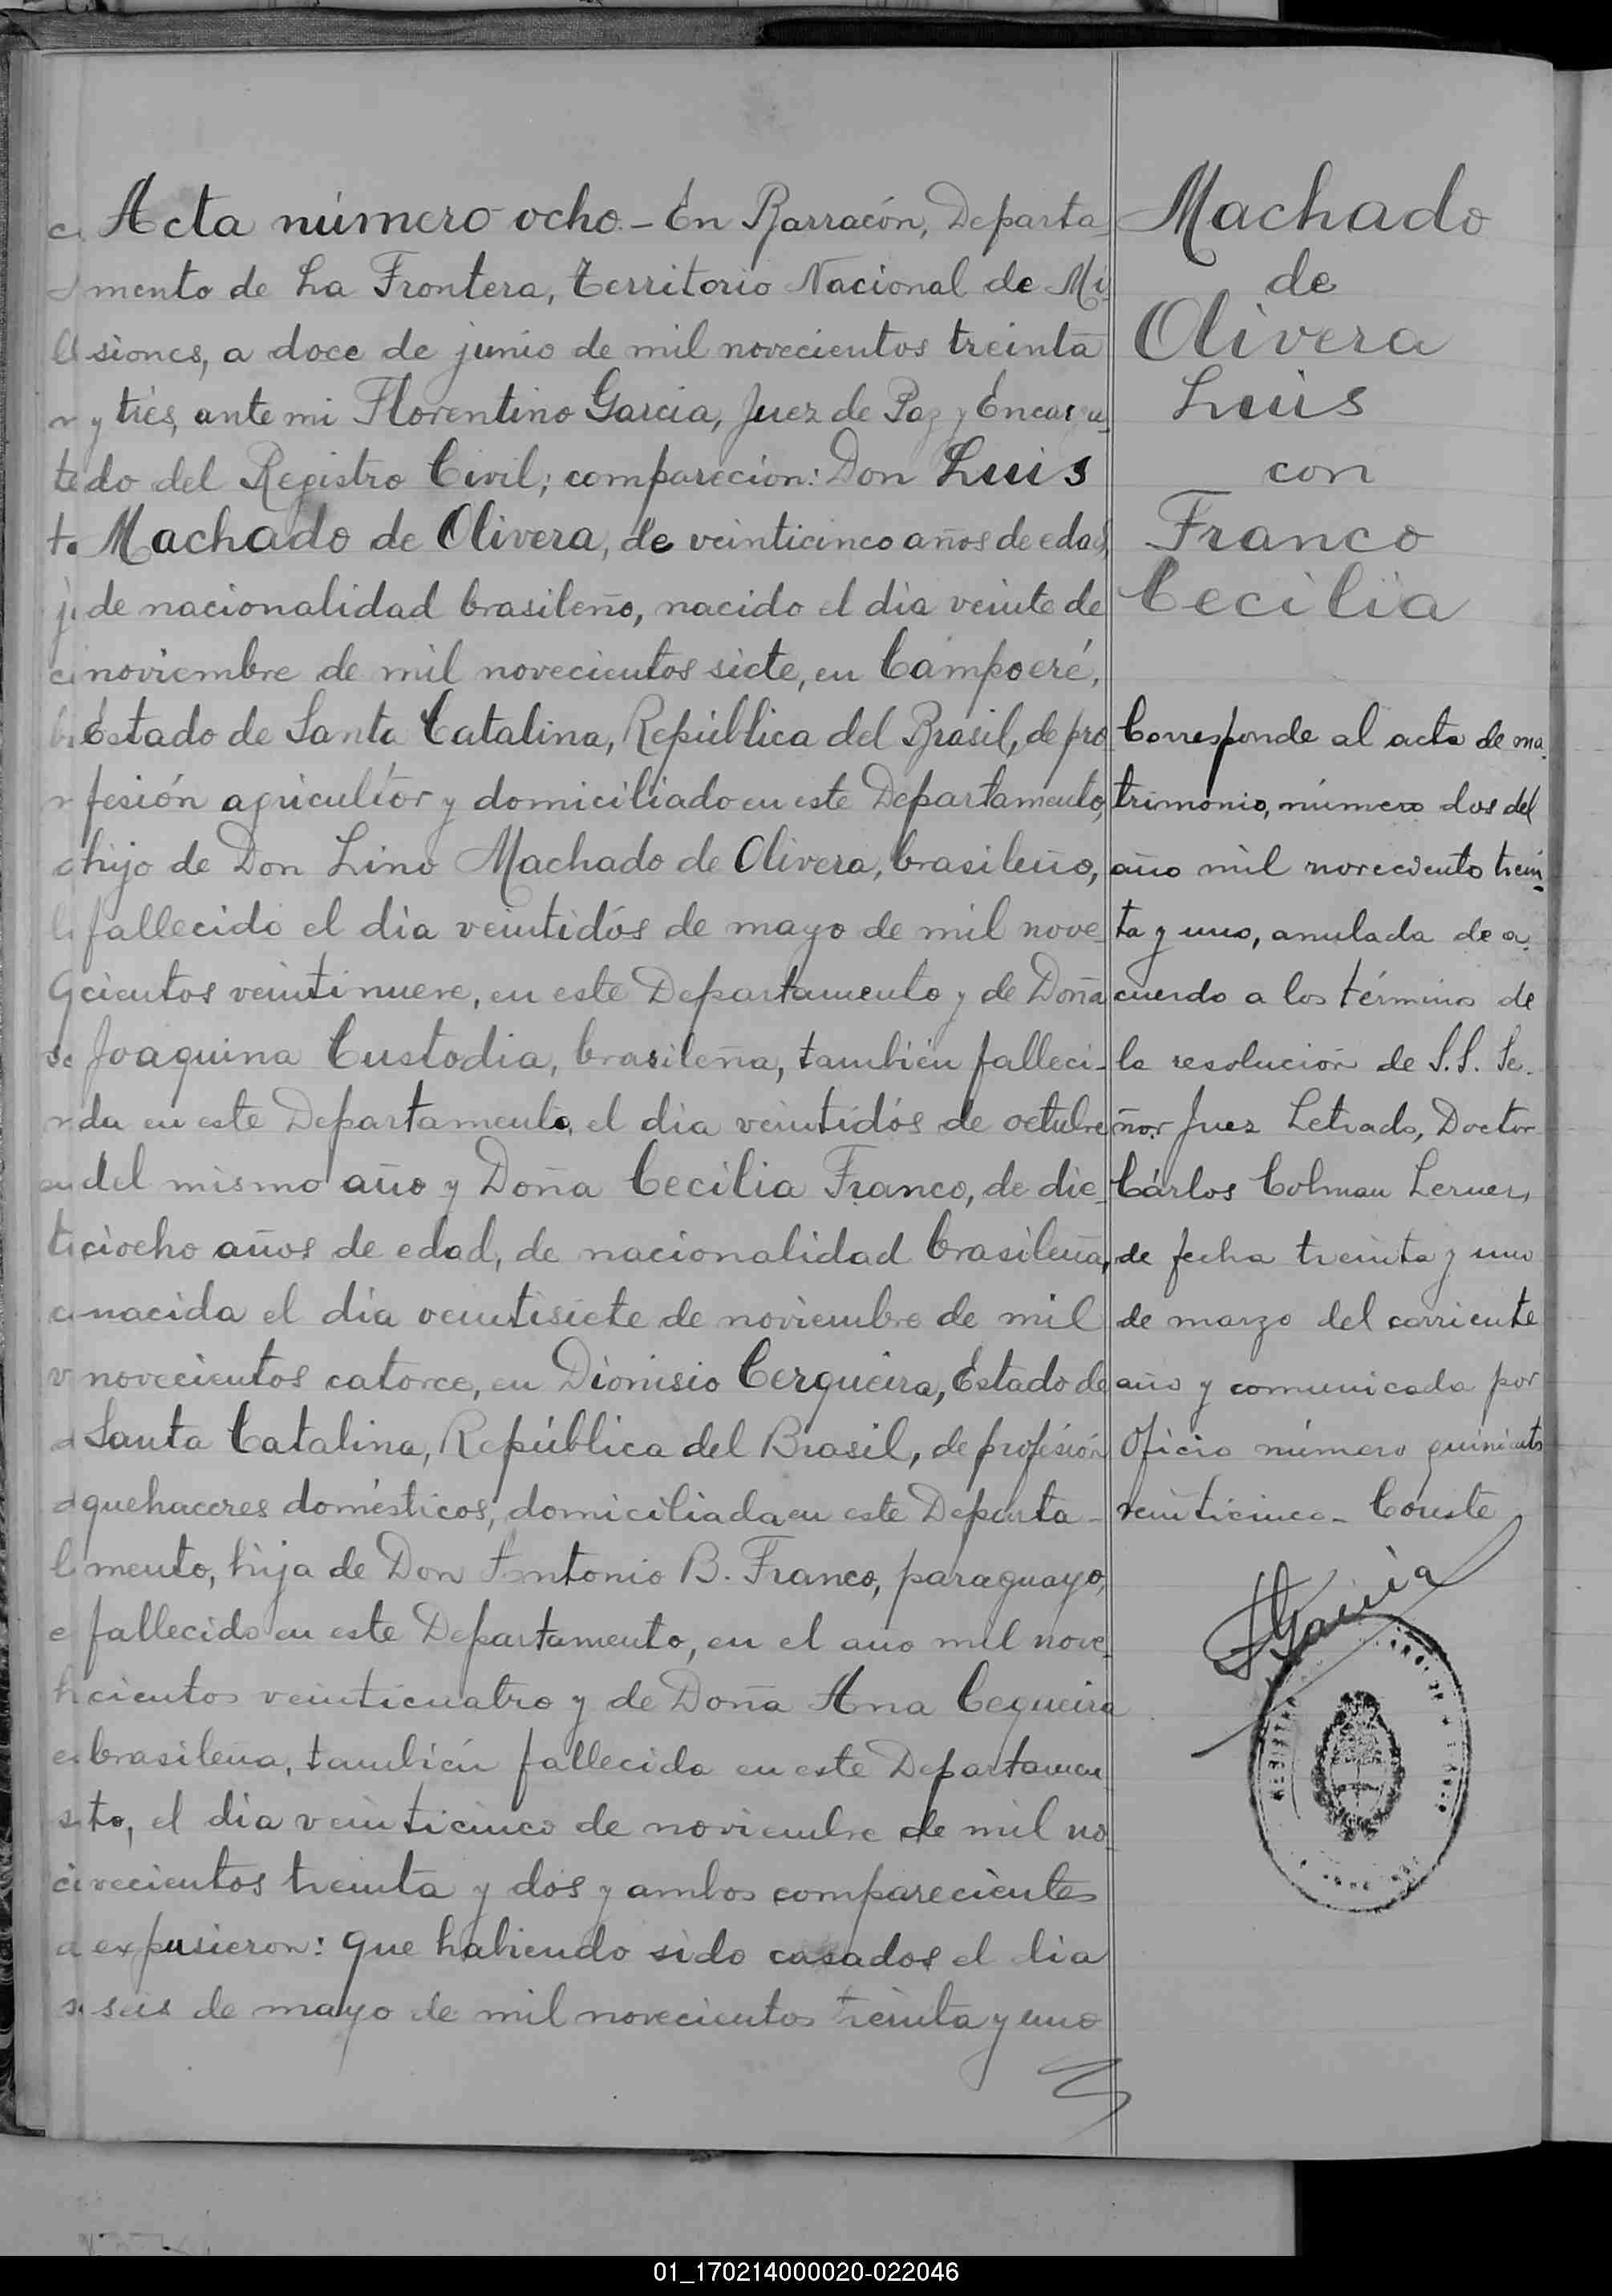 Acta número ocho.- En Barracón, Departa-
mento de La Frontera, Territorio Nacional de Mi-
siones, a doce de junio de mil novecientos treinta
y tres, ante mi Florentino Garcia, Juez de Paz y Encarga-
do del Registro Civil; comparecion: Don Luis
Machado de Olivera, de veinticinco años de edad,
de nacionalidad brasileño, nacido el dia veinte de
noviembre de mil novecientos siete, en Campoeré,
Estado de Santa Catalina, República del Brasil, de pro-
fesión agricultor y domiciliado en este Departamento,
hijo de Don Lino Machado de Olivera, brasileño,
fallecido el dia veintidós de mayo de mil nove-
cientos veintinueve, en este Departamento y de Doña
Joaquina Custodia, brasileña, también falleci-
da en este Departamento, el dia veintidós de octubre
del mismo año y Doña Cecilia Franco, de die-
ciocho años de edad, de nacionalidad brasileña,
nacida el dia veintisiete de noviembre de mil
novecientos catorce, en Dionisio Cerqueira, Estado de
Santa Catalina, República del Brasil, de profesión
quehaceres domésticos, domiciliada en este Departa-
mento, hija de Don Antonio B. Franco, paraguayo,
fallecido en este Departamento, en el año mil nove-
cientos veinticuatro y de Doña Ana Cequeira
brasileña, también fallecida en este Departamen-
to, el dia veinticinco de noviembre de mil no-
vecientos treinta y dos y ambos comparecientes
expusieron: que habiendo sido casados el dia
seis de mayo de mil novecientos treinta y uno
Machado
de
Olivera
Luis
con
Franco
Cecilia
Corresponde al acta de ma-
trimonio, número dos del
año mil novecientos trein-
ta y uno, anulada de a-
cuerdo a los términos de
la resolución de S.S. Se-
ñor Juez Letrado, Doctor
Cárlos Colman Lerner,
de fecha treinta y uno
de marzo del corriente
año y comunicada por
Oficio número quinientos
veinticinco - Conste
FGarcia
01_170214000020-022046